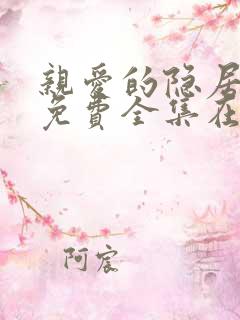 親愛的隐居
免費全集在
阿宸